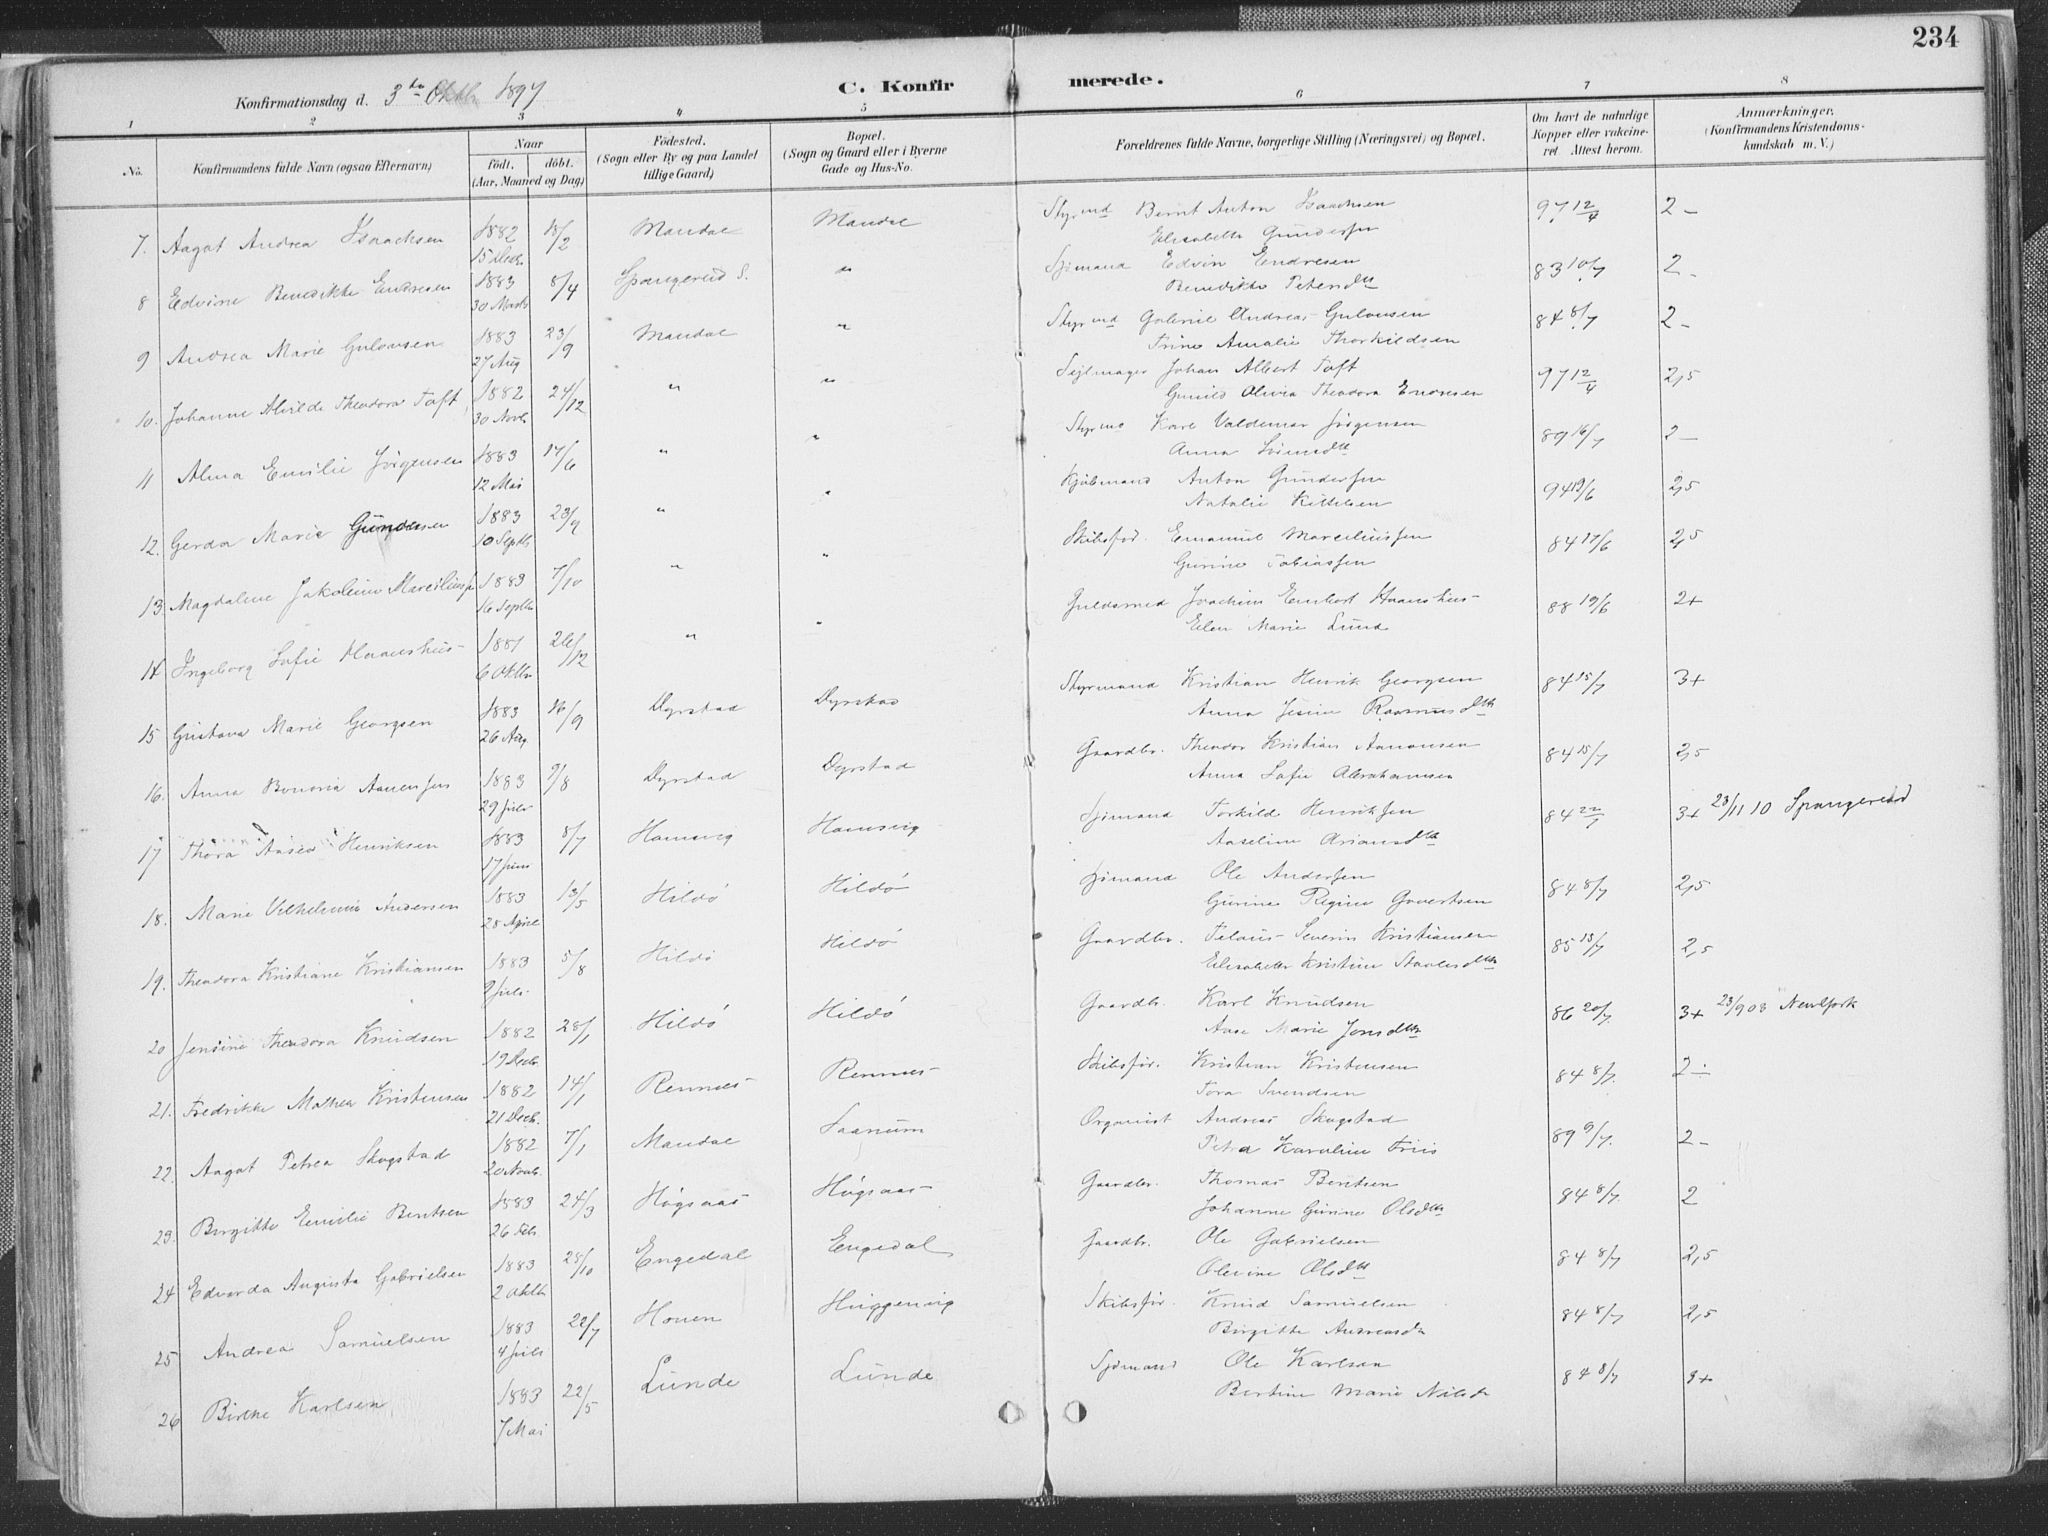 234
Konfirmationsdag d. 3die Oktbr 1897
C. Konfirmerede.
1 2 3 4 5 6 7 8
No. Konfirmandens fulde Navn (ogsaa Efternavn) Naar födt, döbt. (Aar, Maaned og Dag) Födested. (Sogn eller By og paa Landet tillige Gaard) Bopæl. (Sogn og Gaard eller i Byerne Gade og Hus-No. Forældrenes fulde Navne, borgerlige Stilling (Næringsvei) og Bopæl. Om havt de naturlige Kopper eller vakcineret Attest herom. Anmærkninger. (Konfirmandens Kristendomskundskab m. V.)
7. Aagot Andrea Isaachsen 1882 15 Decbr 18/2 Mandal Mandal Styrmd Bernt Anton Isaachsen 97 12/4 2-
Elisabeth Gundersen
8 Edvine Benedikte Endresen 1883 30 Marts 8/4 Spangereid S. " Sjömand Edvin Endresen 83 10/7 2-
Benedikte Petersdtr
9 Andrea Marie Gulovsen 1883 27 Aug 23/9 Mandal " Styrmd Gabriel Andreas Gulovsen 84 8/7 2-
Trine Amalie Thorkildsen
10. Johanne Alvilde Theodora Toft 1882 30 Novb 24/12 " " Sejlmager Johan Albert Toft 97 12/4 2,5
Gunild Olivia Theodora Endresen
11 Alma Emilie Jörgensen 1883 12 Mai 17/6 " " Styrmd Karl Valdemar Jörgensen 89 16/7 2-
Anna
12. Gerda Marie Gundersen 1883 10 Septb 23/9 " " Kjöbmand Anton Gundersen 94 19/6 2,5
Natalie Kittilsen
13 Magdalene Jakobine Marcelius 1883 16 Septbr 7/10 " " Skibsför. Emanuel Marceliussen 84 17/6 2,5
Gurine Tobiassen
14 Ingeborg Sofie Haanshus 1881 6 Oktbr 26/12 " " Guldsmed Joachim Haanshus 88 19/6 2+
Elen Marie Lund
15 Gustava Marie Georgsen 1883 26 Aug 16/9 Dyrstad Dyrstad Styrmand Kristian Henrik Georgsen 84 15/7 3+
Anna Rasmusdtr
16. Anna Aanensen 1883 29 Juli 9/8 Dyrstad Dyrstad Gaardbr. Theodor Kristian Aanonsen 84 15/7 2,5
Anna Sofie Abrahamsen
17 Thora Henriksen 1883 17 Juni 8/7 Homsvig Homsvig Sjömand Torkild Henriksen 84 22/7 3+ 23/11 10 Spangereid
Aaseline
18. Marie Vilhelmine Andersen 1883 28 April 13/5 Hildö Hildö Sjömand Ole Andersen 84 8/7 2,5
Gurine Regine Govertsen
19. Theodora Kristiane Kristiansen 1883 9 Juli 5/8 Hildö Hildö Gaardbr. Severin Kristiansen 85 13/7 2,5
Elisabeth Kristine
20 Jensine Theodora Knudsen 1882 19 Decbr. 28/1 Hildö Hildö Gaardbr. Karl Knudsen 86 20/7 3+ 23/9 03 NewYork
Aase Marie Jonsdtr
21. Fredrikke Mathea Kristensen 1882 21 Decb. 14/1 Rennes Rennes Skibsför. Kristian Kristensen 84 8/7. 2-
Tora Svendsen
22. Aagot Petrea Skogstad 1882 20 Novb. 7/1 Mandal Saanum Organist Andreas Skogstad 89 9/7. 2-
Petra Karoline Friis
23. Birgitte Emilie Berntsen 1883 26 Feb 24/3 Högsaas Högsaas Gaardbr. Thomas Berntsen 84 8/7. 2
Johanne Gurine Olsdtr
24 Edvarda Augusta Gabrielsen 1883 2 Oktbr 28/10 Engedal Engedal Gaardbr. Ole Gabrielsen 84 8/7 2,5
Olevine Olsdtr
25 Andrea Samuelsen 1883 4 Juli 22/7 Homen Skibsför. Knud Samuelsen 84 8/7 2,5
Birgitte Andreasdtr
26 Birthe Karlsen 1883 7 Mai 22/5 Lunde Lunde Sjömand Ole Karlsen 84 8/7 3+
Bertine Marie Nilsdtr